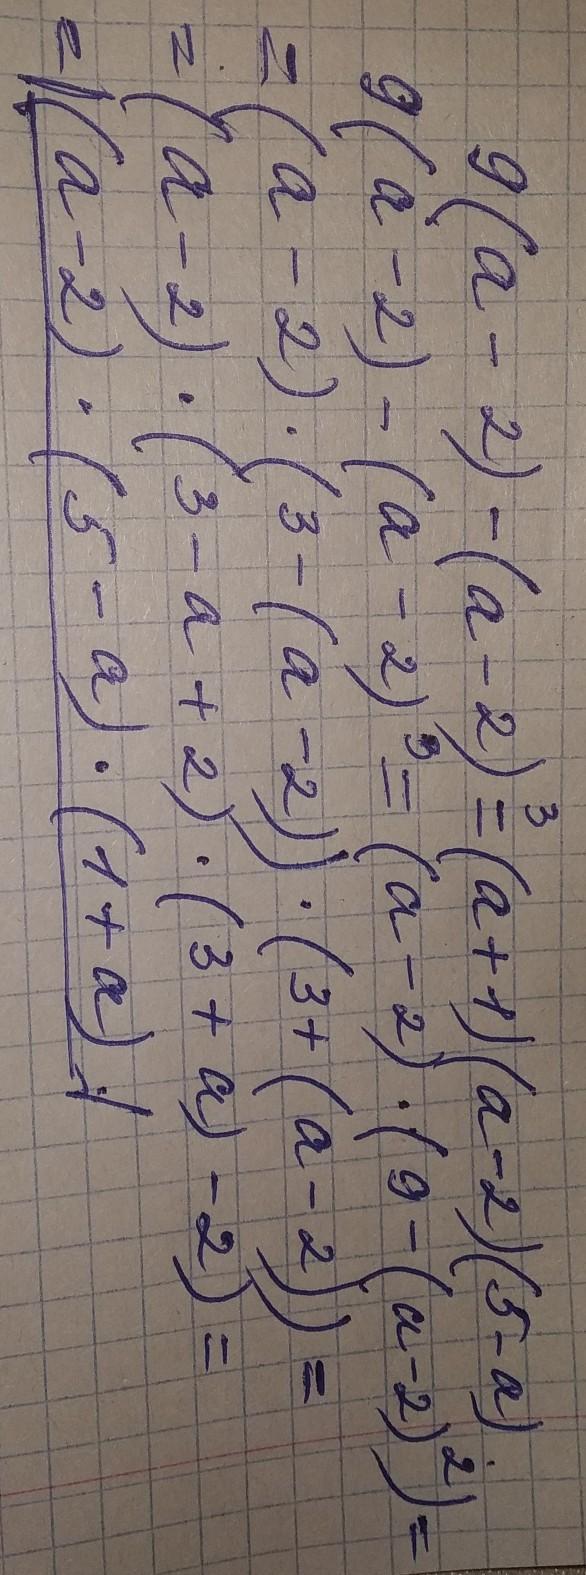 9(a-2)-(a-2)³=(a+1)(a-2)(5-a).
9(a-2)-(a-2)³=(a-2)·(9-(a-2)²)=
=(a-2)·(3-(a-2))·(3+(a-2))=
=(a-2)·(3-a+2)·(3+a)-2)=
=(a-2)·(5-a)·(1+a)